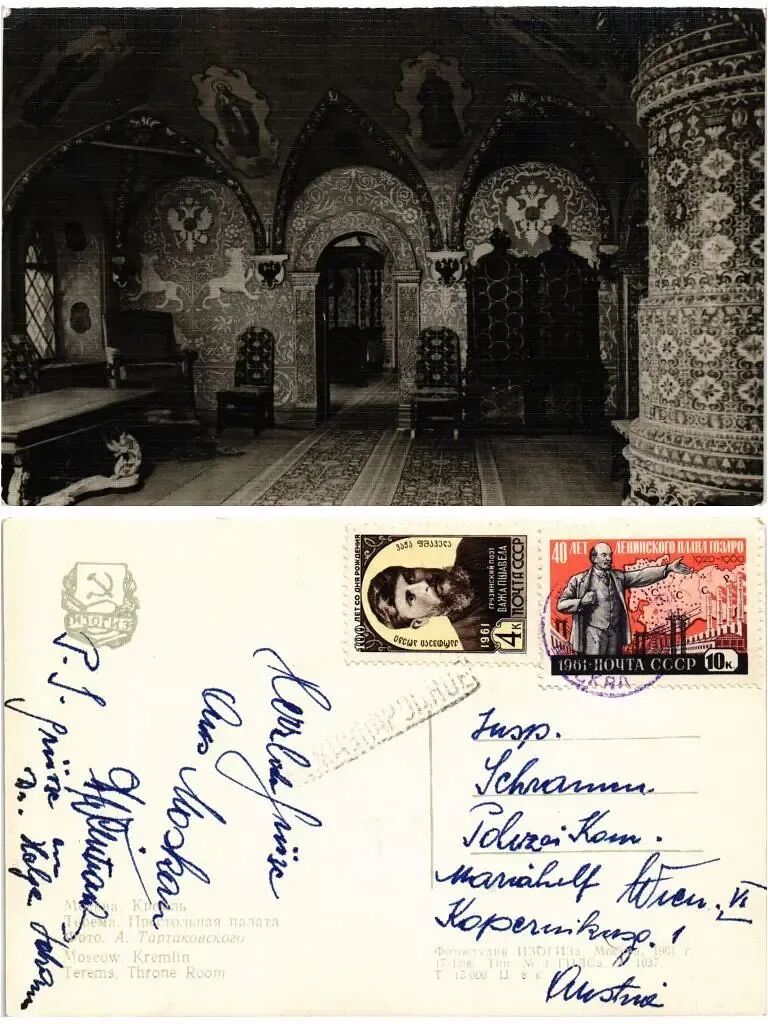 ИЗОГИЗ
100 ЛЕТ СО ДНЯ РОЖДЕНИЯ
ვაჟა ფშაველა
ГРУЗИНСКИЙ ПОЭТ
ВАЖА ПШАВЕЛА
ПОЧТА СССР
1961 4К
40 ЛЕТ ЛЕНИНСКОГО ПЛАНА ГОЭЛРО
1920-1960
1961·ПОЧТА СССР 10К
Herzliche Grüsse
aus Moskau
P. S. Grüsse an
Dr. Holge
Insp.
Schramm
Polizei Kom.
Mariahilf Wien. VI
Kopernikusg. 1
Austria
Москва. Кремль
Терема. Престольная палата
Фото. А. Тартаковского
Moscow. Kremlin
Terems, Throne Room
Фотостудия ИЗОГИЗа, Москва, 1961 г.
Т 15 000 Ц 8 к